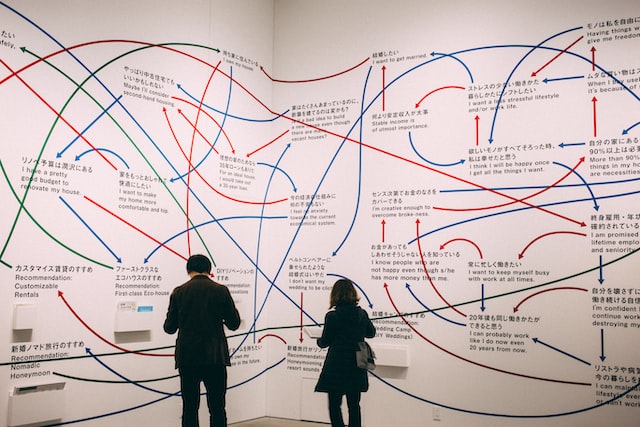 safely.
持ち家に住んでいる
I own my house.
やっぱり中古住宅でも
いいかもしれない
Maybe I'll consider
second-hand housing.
結婚したい
I want to get married.
モノは私を自由に
Having things w
give me freedom
ストレスの少ない働きかた
暮らしかたにシフトしたい
I want a less stressful lifestyle
and/or work life.
ムダな買い物は
When I
it's because of
家はたくさんあまっているのに、
新築を建てるのは変かも?
It's a bad idea to build
a new house even though
there are many
vacant houses?
何より安定収入が大事
Stable income is
of utmost importance.
欲しいモノがすべてそろった時、
私は幸せだと思う
I think I will be happy once
I get all the things I want.
自分の家にある
90%以上は必
More than 90%
things in my ho
are necessities
リノベ予算は潤沢にある
I have a pretty
good budget to
renovate my house.
家をもっとおしゃれで
快適にしたい
I want to make
my home more
comfortable and hip.
理想の家のためなら
35年ローンもありだ
For an ideal house,
I would take out
a 35-year loan.
今の経済の仕組みに
何の不安もない
I feel no anxiety
towards the current
economic system.
センス次第でお金のなさを
カバーできる
I'm creative enough to
overcome broke-ness.
終身雇用・年功
確約されている
I am promised
lifetime employ
and seniority
お金があっても
しあわせじゃない人を知っている
I know people who are
not happy even though s/he
has more money than me.
常に忙しく働きたい
I want to keep myself busy
with work at all times.
カスタマイズ賃貸のすすめ
Recommendation:
Customizable
Rentals
ファーストクラスな
エコハウスのすすめ
Recommendation:
First-class Eco house
DIYリノベーションの
ヘルトコンベアーに
乗せられたような
結婚式はいやだ
I don't want my
wedding to be
自分を壊さずに
働き続ける自信
I'm confident
continue work
destroying my
20年後も同じ働きかたが
できると思う
I can probably work
like I do now even
20 years from now.
新婚ノマド旅行のすすめ
Recommendation:
Nomadic
Honeymoon
Recommendation:
Wedding Camp
(DIY Weddings)
リストラや病気
今の暮らしを
I can maintain
lifestyle even
or can't work